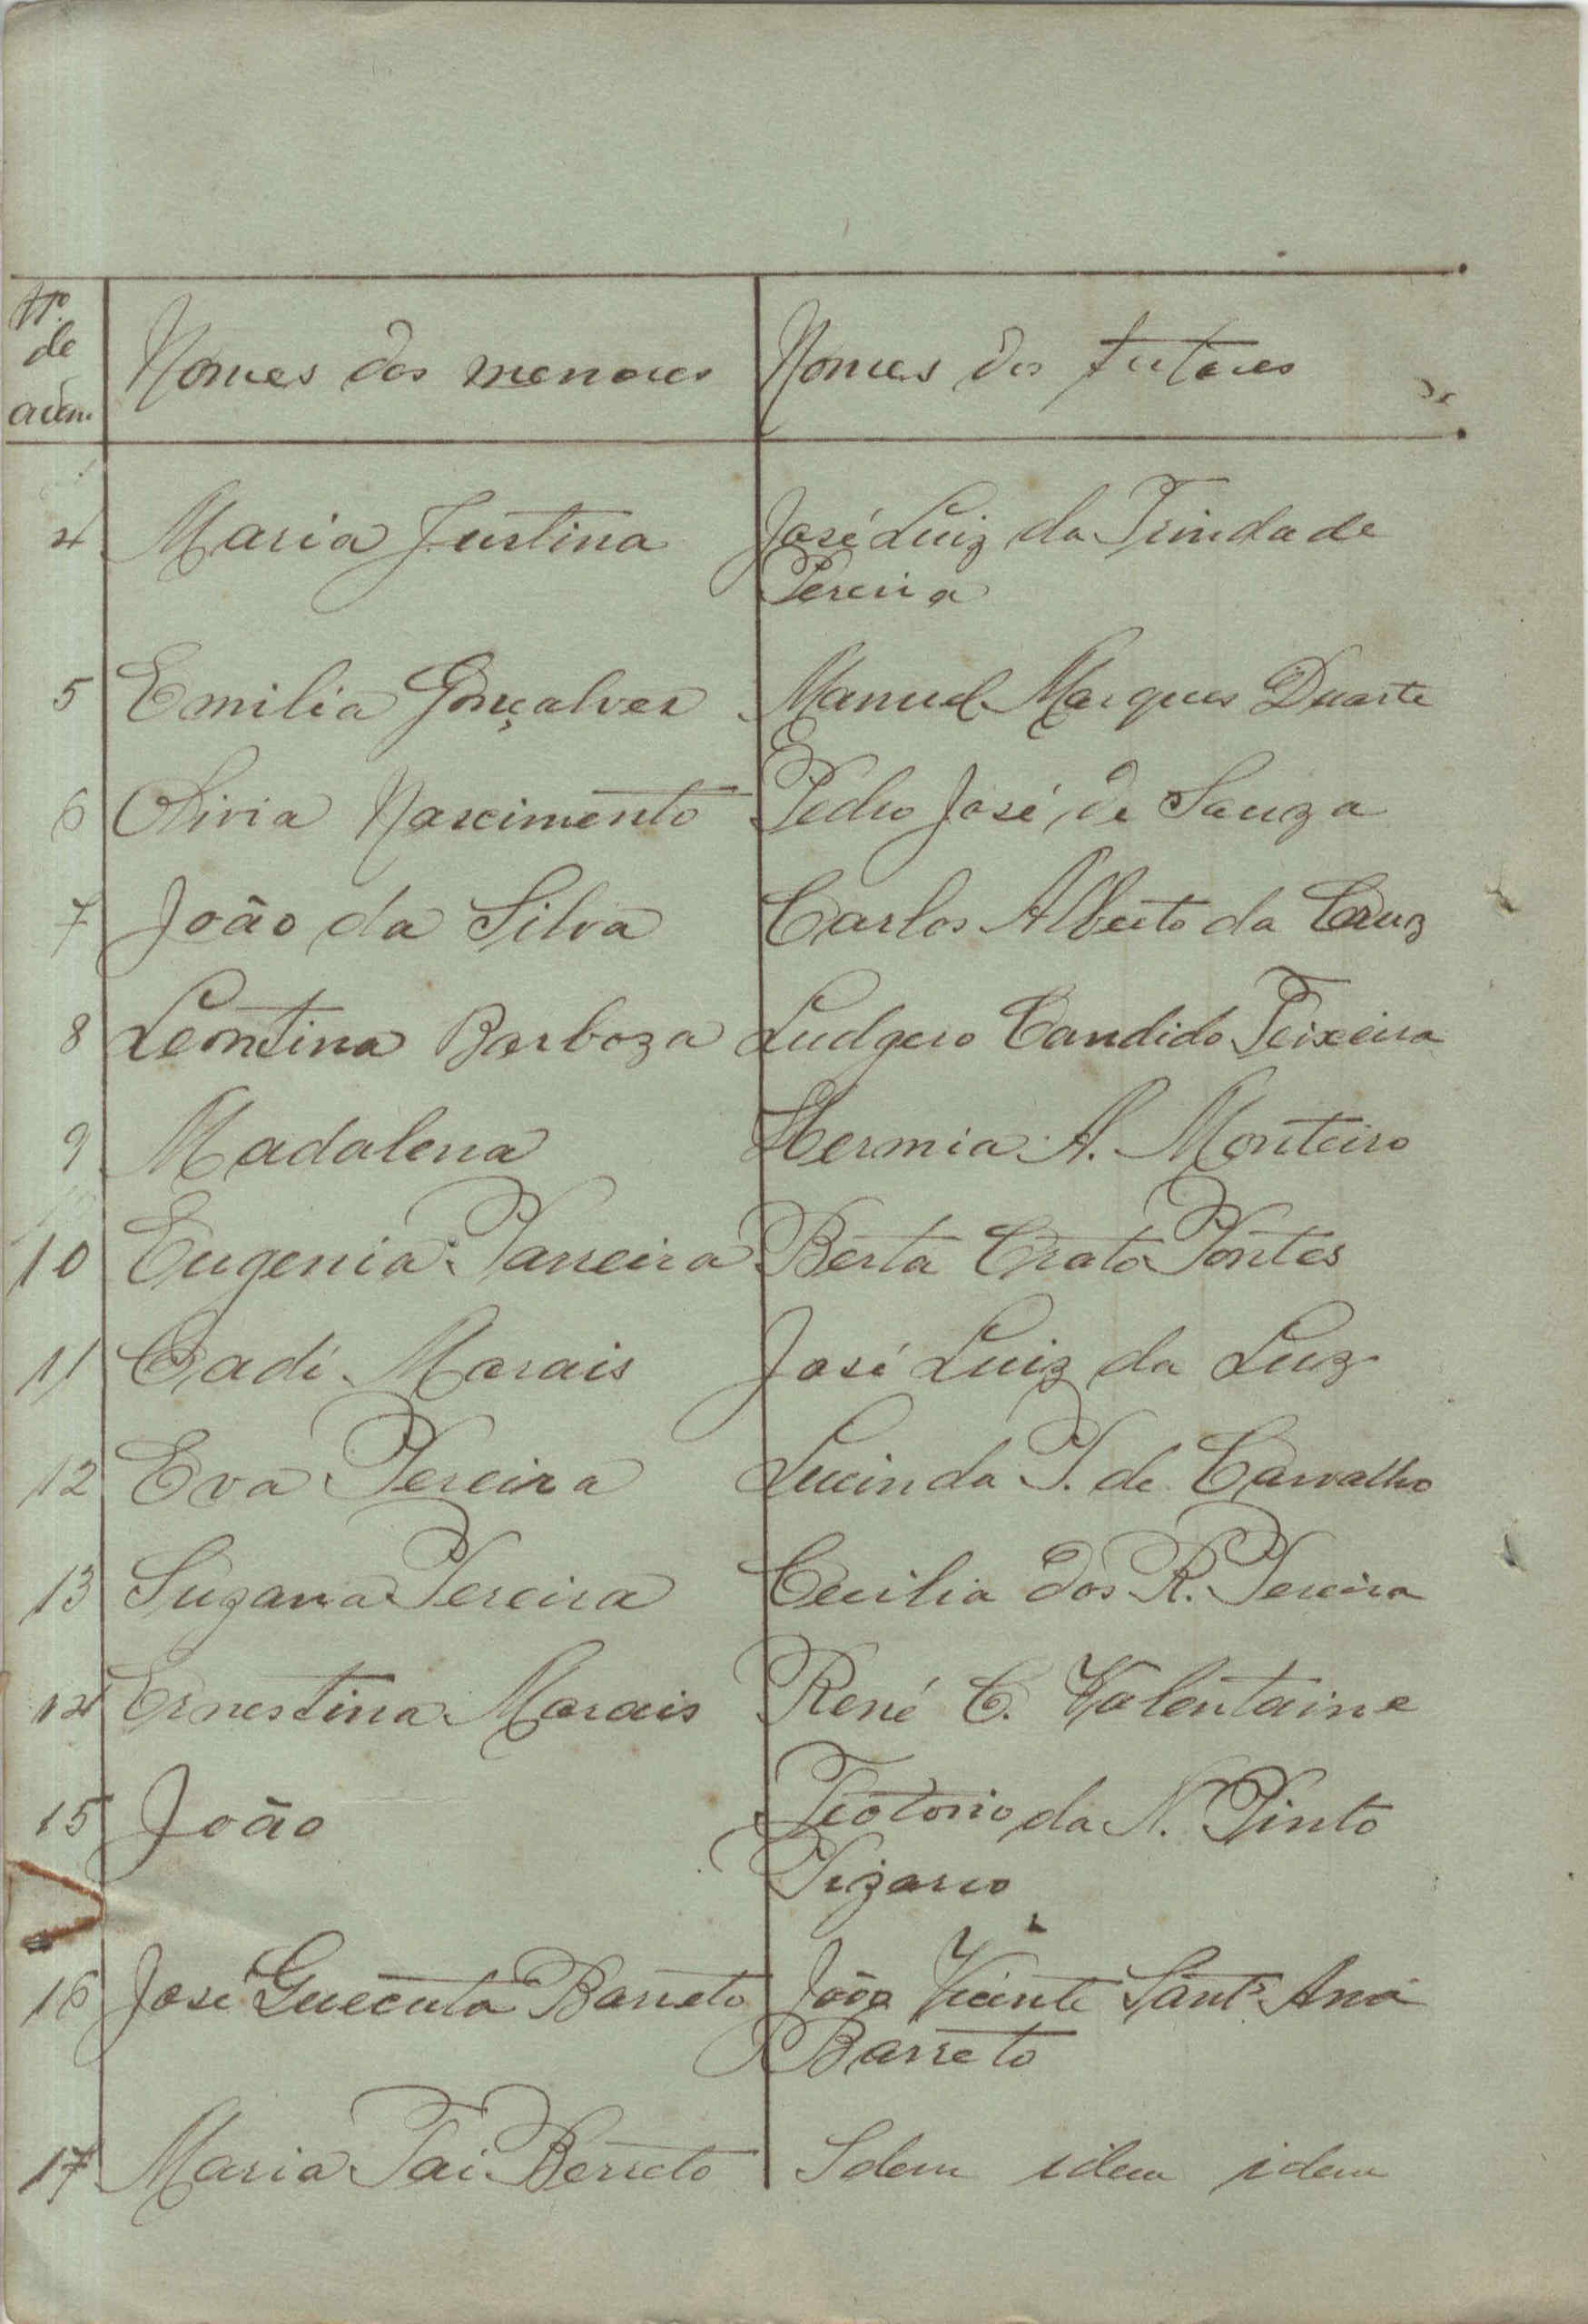 Nº
de
Nomes dos menores Nomes dos tutores
4 Maria Justina José Luiz da Trindade
Pereira
5 Emilia Gonçalves Manuel Marques Duarte
6 Olivia Nascimento Pedro José de Sauza
7 João da Silva Carlos Alberto da Cruz
8 Leontina Barboza Ludgero Candido Teixeira
9 Madalena Hermia A. Monteiro
10 Eugenia Parreira Berta Crato Pontes
11 Cadi Morais José Luiz da Luz
12 Eva Pereira Lucinda P. de Carvalho
13 Suzana Pereira Cecilia dos R. Pereira
14 Ernestina Morais René C. Valentaine
15 João Teotonio da N. Pinto
Pizarro
16 José Barreto João Vicente Sant' Ana
Barreto
17 Maria Berreto Idem idem idem